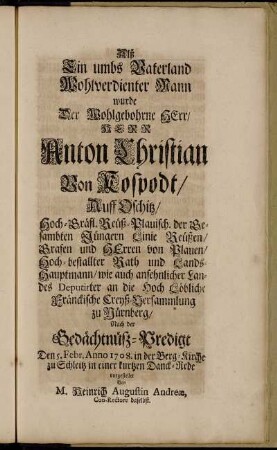 Alß
Ein umbs Vaterland
Wohlverdienter Mann
wurde
Der Wohlgebohrne HErr/
HERR
Anton Christian
Von Kospodt/
Auff Oschitz/
Hoch-Gräfl. Reüß-Plauisch. der Ge-
sambten Jüngern Linie Reüßen/
Grafen und HErren von Plauen/
Hoch-bestallter Rath und Lands-
Hauptmann/ wie auch ansehnlicher Lan-
des Deputirter an die Hoch Löbliche
Fränckische Creyß-Versammlung
zu Nürnberg/
Nach der
Gedächtnüß-Predigt
Den 5. Febr. Anno 1708. in der Berg-Kirche
zu Schleitz in einer kurtzen Danck-Rede
vorgestellet
Von
M. Heinrich Augustin Andreæ,
Con-Rectore daselbst.